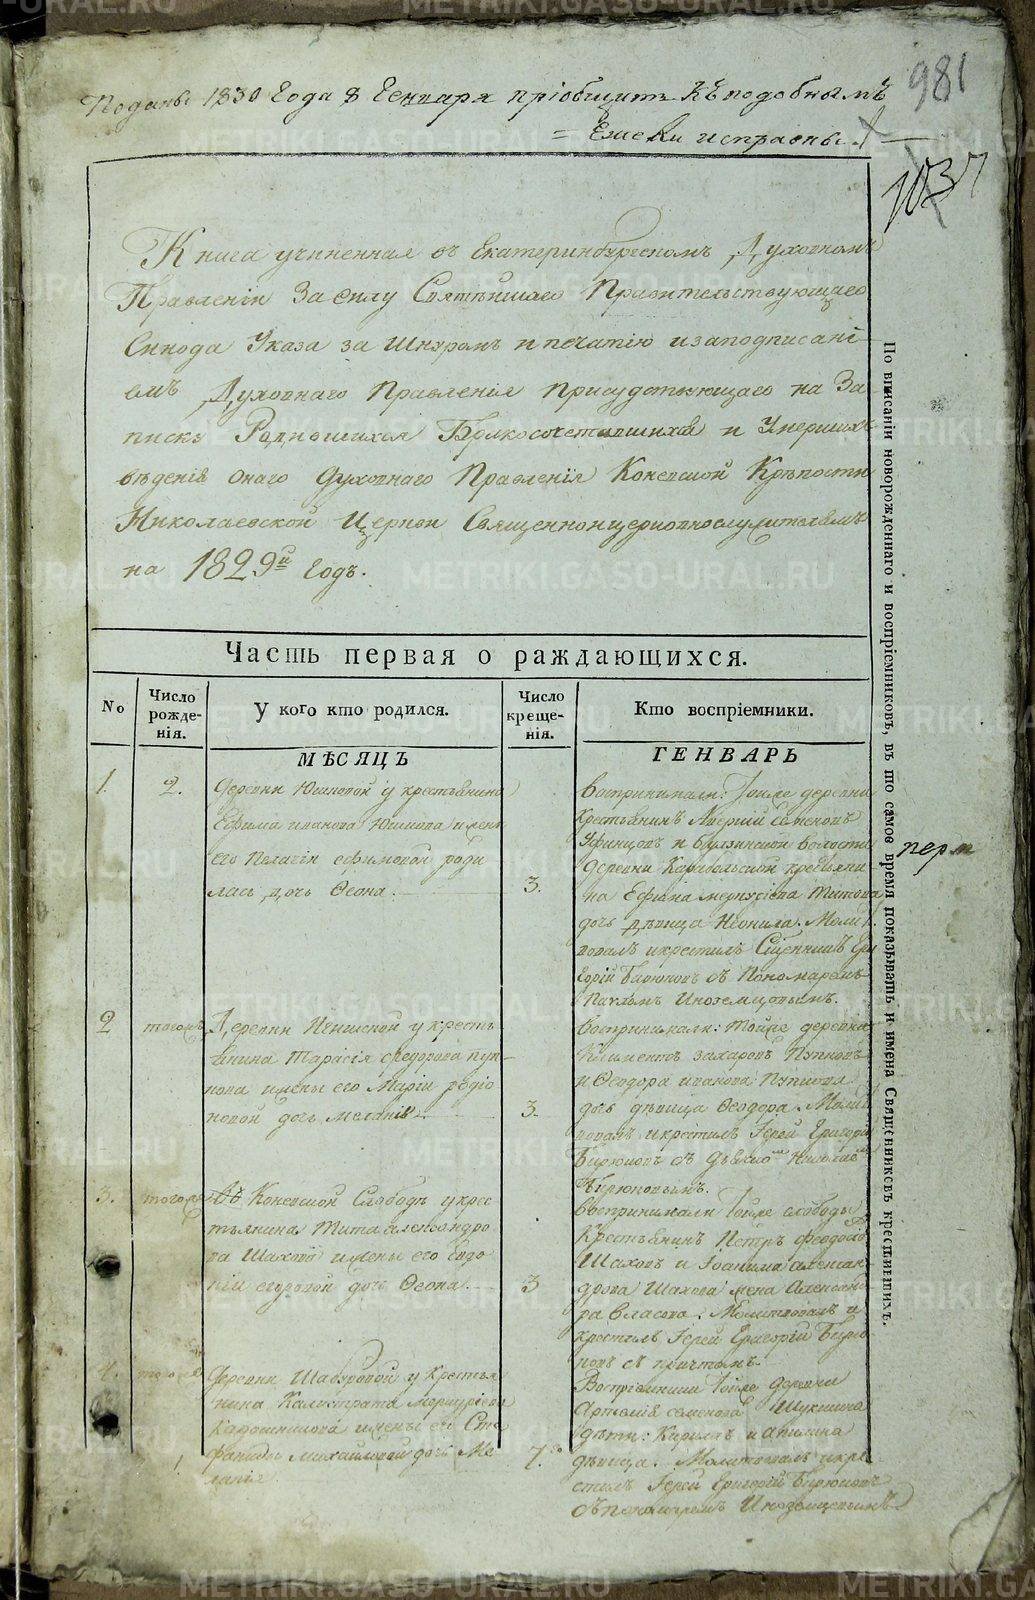 Поданы 1830 Года 8 Генваря пріобщить къ подобнымъ
= Ежели исправны.
981
1037
Книга учиненная въ Екатеринбургскомъ Духовномъ
Правленіи За силу Святѣйшаго Правительствующаго
Синода Указа за шнуромъ и печатію и заподписані-
емъ Духовнаго Правленія присудствующаго на За-
писку Родившихся Бракосочетавшихся и Умершихъ
вѣденія онаго Духовнаго Правленія Коневской Крѣпости
Николаевской Церкви Священноицерковнослужителямъ
на 1829й Годъ.
Часть первая о раждающихся.
No
Число рожде-нія.
У кого кто родился.
Число креще-нія.
Кто воспріемники.
МѢСЯЦЪ
ГЕНВАРЬ
1.
2.
Деревни Юшковой у крестьянина
Ефима иванова Юшкова и жены
его Пелагіи ефимовой роди
лась дочь Ѳеона.
3.
Воспринимали: Тойже деревни
крестьянинъ семеновъ
и Булзинской волости
деревни Карабольской крестьяни
на Ефима Титова
дочь дѣвица Неонила. Молит
вовалъ и крестилъ Сщенникъ Гри
горій Бирюковъ съ Пономаремъ
Павломъ Иноземцовымъ.
2
тогожъ
Деревни у кресть
янина Тарасія феодорова Пуп-
кова и жены его Маріи родіо
новой дочь Меланія
3.
Воспринимали: Тойже деревни
Климентъ захаровъ Пупковъ
и Ѳеодора иванова Пупкова
дочь дѣвица Ѳеодора. Молит
вовалъ и крестилъ Іерей Григорій
Бирюковъ съ Николаемъ
Бирюковымъ.
3.
тогожъ
Въ Коневской Слободѣ у крес
тьянина Тита александро
ва Шахова и жены его Евдо
кіи егоровой дочь Ѳеона.
3
Воспринимали Тойже слободы
Крестьянинъ Петръ феодоровъ
Шаховъ и Іоакима алексан
дрова Шахова жена Александ
ра Власова. Молитвовалъ и
крестилъ Іерей Григорій Бирю
ковъ съ причтомъ.
4.
тогожъ
Деревни Шабуровой у крестья
нина Калистрата меркуріева
и жены его Сте
фаниды михайловой дочь Ме
ланія
7.
Воспріемники Тойже деревни
семенова
дѣти: Кирилъ и
дѣвица. Молитвовалъ и кре
стилъ Іерей Григорій Бирюковъ
съ пономаремъ Иноземцовымъ
По вписаніи новорожденнаго и воспріемниковъ, въ то самое время показывать и имена Священниковъ крестившихъ.
перм
METRIKI.GASO-URAL.RU